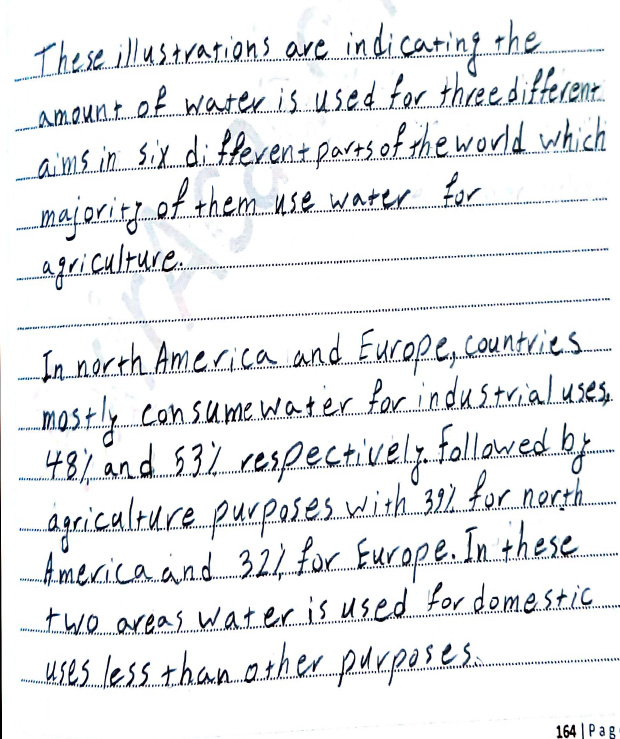 These illustrations are indicating the
amount of water is used for three different
aims in six different parts of the world which
majority of them use water for
agriculture.
In north America and Europe, countries
mostly consume water for industrial uses,
48% and 53% respectively. followed by
agriculture purposes with 39% for north
America and 32% for Europe. In these
two areas water is used for domestic
uses less than other purposes.
164 | Pag